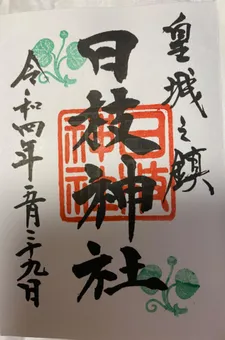 皇城之鎮
日枝神社
令和四年五月二十九日
日枝神社